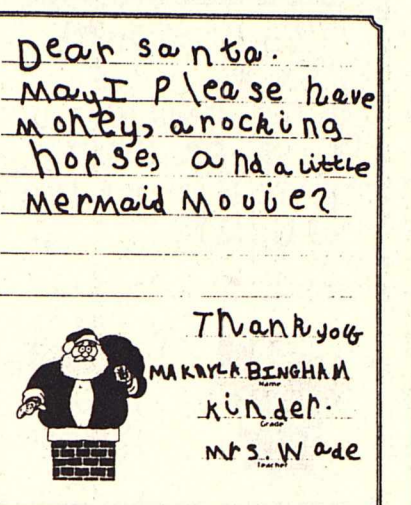 Dear santa.
May I Please have
money, a rocking
horse, and a little
mermaid Movie?
Thank you
MAKAYLA BINGHAM
Name
Kinder.
Grade
Mrs. Wade
Teacher